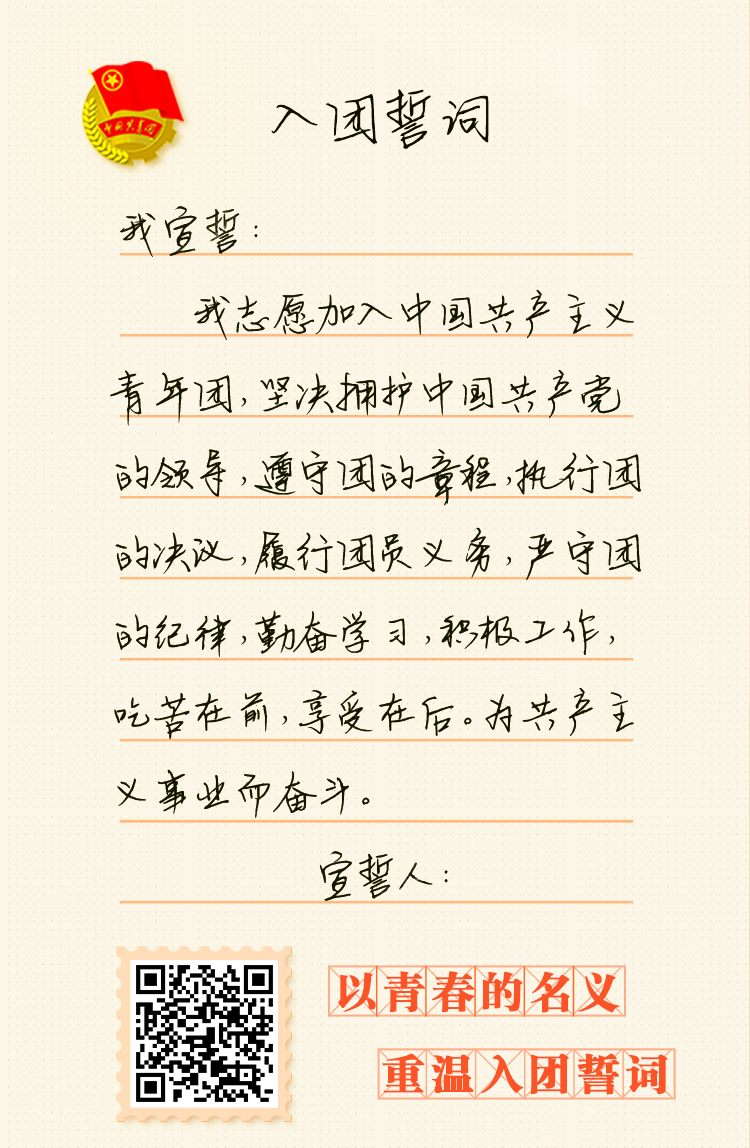 中国共青团
入团誓词
我宣誓：
我志愿加入中国共产主义
青年团，坚决拥护中国共产党
的领导，遵守团的章程，执行团
的决议，履行团员义务，严守团
的纪律，勤奋学习，积极工作，
吃苦在前，享受在后。为共产主
义事业而奋斗。
宣誓人：
以青春的名义
重温入团誓词